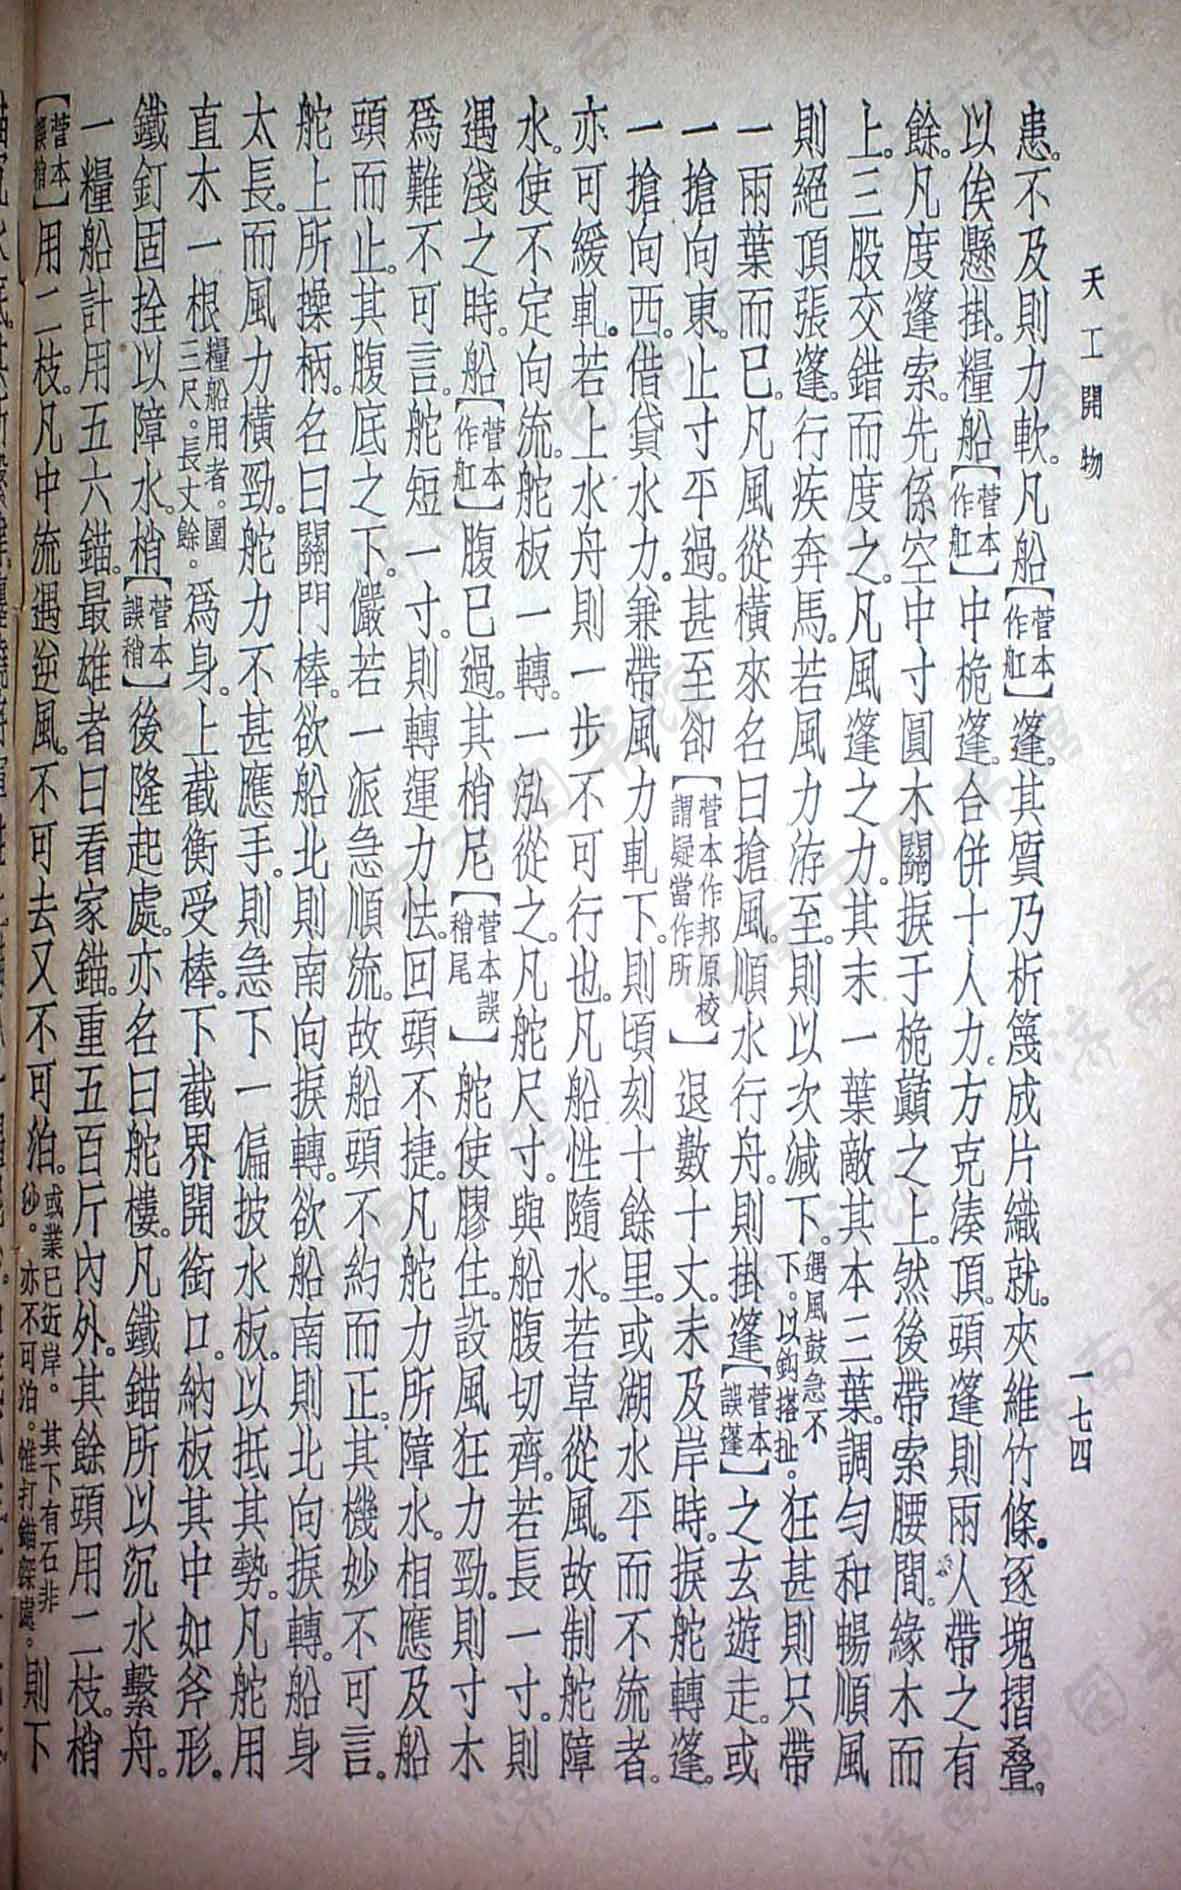 天工開物
一七四
患。不及則力軟。凡船【菅本作舡】蓬。其質乃析篾成片織就。夾維竹條。逐塊摺疊。
以俟懸掛。糧船【菅本作舡】中桅蓬。合併十人力。方克湊頂。頭蓬則兩人帶之有
餘。凡度蓬索。先係空中寸圓木關捩于桅巔之上。然後帶索腰間。緣木而
上。三股交錯而度之。凡風蓬之力。其末一葉敵其本三葉。調勻和暢順風
則絕頂張蓬。行疾奔馬。若風力洊至。則以次減下。遇風鼓急不下。以鈎搭扯。狂甚則只帶
一兩葉而已。凡風從橫來名曰搶風。順水行舟。則掛蓬【菅本誤蓬】之玄遊走。或
一搶向東。止寸平過。甚至卻【菅本作邦原校謂疑當作所】退數十丈。未及岸時。捩舵轉蓬。
一搶向西。借貸水力。兼帶風力軋下。則頃刻十餘里。或湖水平而不流者。
亦可緩軋。若上水舟則一步不可行也。凡船性隨水。若草從風。故制舵障
水。使不定向流。舵板一轉。一泓從之。凡舵尺寸。與船腹切齊。若長一寸。則
遇淺之時。船【菅本作舡】腹已過。其梢尼【菅本誤稍尾】舵使膠住。設風狂力勁。則寸木
爲難不可言。舵短一寸。則轉運力怯。回頭不捷。凡舵力所障水。相應及船
頭而止。其腹底之下。儼若一派急順流。故船頭不約而正。其機妙不可言。
舵上所操柄。名曰關門棒。欲船北則南向捩轉。欲船南則北向捩轉。船身
太長。而風力橫勁。舵力不甚應手。則急下一偏披水板。以抵其勢。凡舵用
直木一根糧船用者。圍三尺。長丈餘。爲身。上截衡受棒。下截界開銜口。納板其中如斧形。
鐵釘固拴以障水。梢【菅本誤稍】後隆起處。亦名曰舵樓。凡鐵錨所以沉水繫舟。
一糧船計用五六錨。最雄者曰看家錨。重五百斤內外。其餘頭用二枝。梢
【菅本誤稍】用二枝。凡中流遇逆風。不可去又不可泊。或業已近岸。其下有石非沙。亦不可泊。惟打錨深處。則下